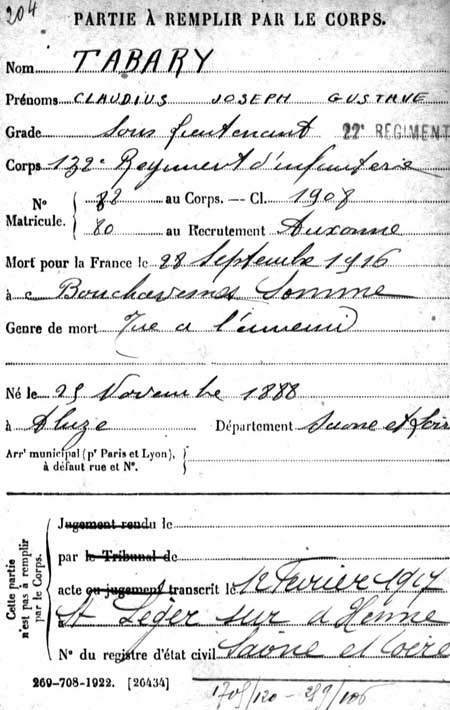 204
PARTIE À REMPLIR PAR LE CORPS.
Nom TABARY
Prénoms CLAUDIUS JOSEPH GUSTAVE
Grade Sous lieutenant 22e REGIMENT
Corps 132e Regiment d'infanterie
N° Matricule. { 82 au Corps. — Cl. 1908
80 au Recrutement Auxonne
Mort pour la France le 28 Septembre 1916
à Bouchavesnes Somme
Genre de mort Tué a l'ennemi
Né le 25 Novembre 1888
à Aluze Département Saone et Loir
Arrt municipal (pr Paris et Lyon), à défaut rue et N°. }
Cette partie n'est pas à remplir par le Corps.
Jugement rendu le
par le Tribunal de
acte ou jugement transcrit le 12 Fevrier 1917
à St Léger sur d Henne
N° du registre d'état civil Saone et Loire
269-708-1922. [26434]